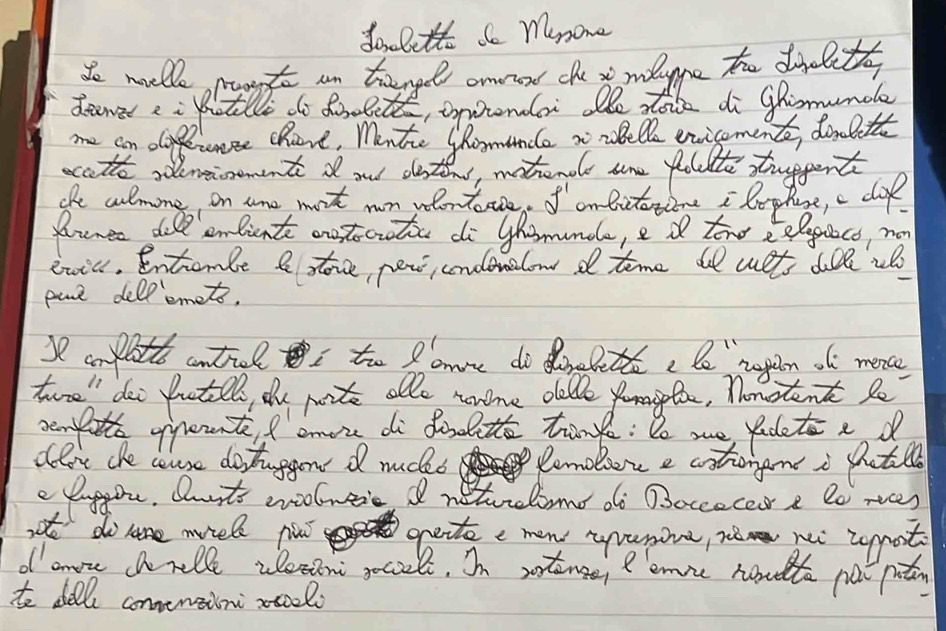 Lisabetta da Messina
La novella presenta un triangolo amoroso che si sviluppa tra Lisabetta,
Lorenzo e i fratelli di Lisabetta, ispirandosi alla storia di Ghismunda
ma con differenze chiave. Mentre Ghismunda si ribella eroicamente, Lisabetta
accetta silenziosamente il suo destino, mostrando una fedeltà struggente
che culmina in una morte non volontaria. L'ambientazione è borghese, a dif
ferenza dell'ambiente aristocratico di Ghismunda, e il tono è elegiaco, non
eroico. Entrambe le storie, però, condividono il tema del culto delle reli
quie dell'amato.
Il conflitto centrale è tra l'amore di Lisabetta e la "ragion di merca
tura" dei fratelli, che porta alla rovina della famiglia. Nonostante la
sconfitta apparente, l'amore di Lisabetta trionfa: la sua fedeltà e il
dolore che causa distruggono il nucleo familiare e costringono i fratelli
a fuggire. Questo evidenzia il naturalismo di Boccaccio e la neces
sità di una morale più aperta e meno repressiva, sia nei rapporti
d'amore che nelle relazioni sociali. In sostanza, l'amore risulta più poten
te delle convenzioni sociali